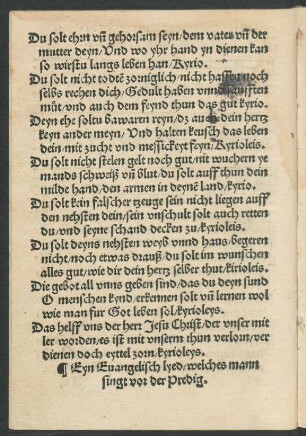 Du solt ehrn vñ gehorsam seyn/dem vater vñ der
mutter deyn/Vnd wo yhr hand yn dienen kan
so wirstu langs leben han/Kyrio.
Du solt nicht todtē zorniglich/nicht hassen noch
selbs rechen dich/Gedult haben vnnd sanfften
můt/vnd auch dem feynd thun das gut kyrio.
Deyn ehe soltu bawaren reyn/dz auch dein hertz
keyn ander meyn/Vnd halten keusch das leben
dein/mit zucht vnd messickeyt feyn/Kyrioleis.
Du solt nicht stelen gelt noch gut/nit wuchern ye
mands schweiß vñ blut/du solt auff thun dein
milde hand/den armen in deynē land/kyrio.
Du solt kein falscher tzeuge sein nicht liegen auff
den nehsten dein/sein vnschult solt auch retten
du/vnd seyne schand decken zu/kyrioleis.
Du solt deyns nehsten weyb vnnd haus/begeren
nicht/noch etwas drauß/du solt im wunschen
alles gut/wie dir dein hertz selber thut/kirioleis.
Die gebot all vnns geben sind/das du deyn sund
O menschen kynd/erkennen solt vñ lernen wol
wie man fur Got leben sol/kyrioleys.
Das helff vns der herr Jesu Christ/der vnser mit
ler worden/es ist mit vnserm thun verlorn/ver
dienen doch eyttel zorn/kyrioleys.
¶ Eyn Euangelisch lyed/welches mann
singt vor der Predig.